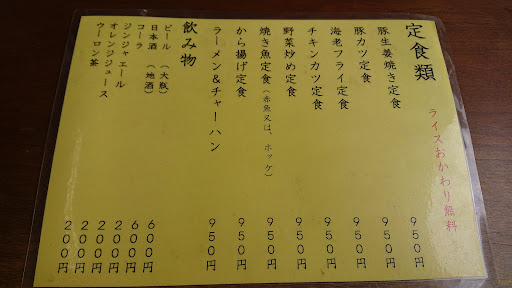 定食類
ライスおかわり無料
豚生姜焼き定食 950円
豚カツ定食 950円
海老フライ定食 950円
チキンカツ定食 950円
野菜炒め定食 950円
焼き魚定食(赤魚又は、ホッケ) 950円
から揚げ定食 950円
ラーメン&チャーハン 950円
飲み物
ビール(大瓶) 600円
日本酒(地酒) 600円
コーラ 200円
ジンジャエール 200円
オレンジジュース 200円
ウーロン茶 200円